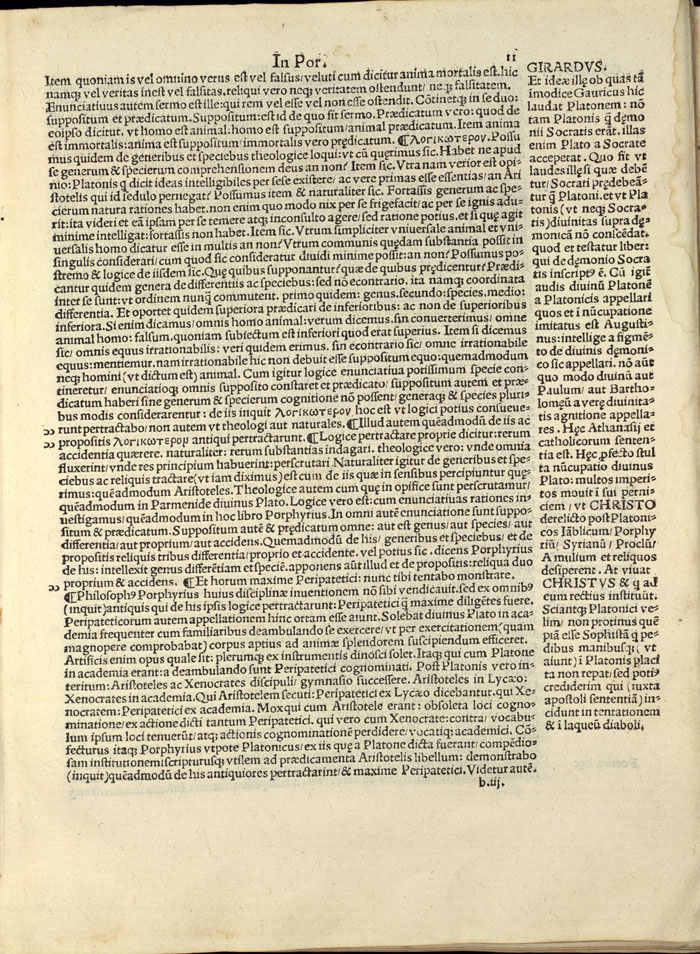 In Por.
11
Item quoniam is vel omnino verus est vel falsus/veluti cum dicitur anima mortalis est. hic
namqȝ vel veritas inest vel falsitas. reliqui vero neqȝ veritatem ostendunt/ neqȝ falsitatem.
Enunciatiuus autem sermo est ille: qui rem vel esse vel non esse ostendit. Cōtinetqȝ in se duo:
suppositum et prædicatum. Suppositum: est id de quo fit sermo. Prædicatum vero: quod de
eo ipso dicitur. vt homo est animal: homo est suppositum/animal prædicatum. Item anima
est immortalis: anima est suppositum/immortalis vero prędicatum. ¶Λογικώτερον. Possu
mus quidem de generibus et speciebus theologice loqui: vt cū querimus sic. Habet ne apud
se generum & specierum comprehensionem deus an non? Item sic. Vtra nam verior est opi-
nio: Platonis q̄ dicit ideas intelligibiles per sese existere/ ac vere primas esse essentias/an Ari
stotelis qui id sedulo pernegat? Possumus item & naturaliter sic. Fortassis generum ac spe-
cierum natura rationes habet. non enim quo modo nix per se frigefacit/ ac per se ignis adu-
rit: ita videri et eā ipsam per se temere atqȝ inconsulto agere/ sed ratione potius. et si quę agit
minime intelligat: fortassis non habet. Item sic. Vtrum simpliciter vniuersale animal et vni-
uersalis homo dicatur esse in multis an non? Vtrum communis quędam substantia possit in
singulis considerari/ cum quod sic consideratur diuidi minime possit: an non? Possumus po-
stremo & logice de iisdem sic. Quę quibus supponantur/ quæ de quibus prędicentur? Prædi-
cantur quidem genera de differentiis ac speciebus: sed nō econtrario. ita namqȝ coordinata
inter se sunt: vt ordinem nunq̄ commutent. primo quidem: genus. secundo: species. medio:
differentia. Et oportet quidem superiora prædicari de inferioribus: ac non de superioribus
inferiora. Si enim dicamus/omnis homo animal: verum dicemus. sin conuerterimus/ omne
animal homo: falsum. quoniam subiectum est inferiori quod erat superius. Item si dicemus
sic/ omnis equus irrationabilis: veri quidem erimus. sin econtrario sic/ omne irrationabile
equus: mentiemur. nam irrationabile hic non debuit esse suppositum equo: quemadmodum
neqȝ homini (vt dictum est) animal. Cum igitur logice enunciatiua potissimum specie con-
tineretur/ enunciatioqȝ omnis supposito constaret et prædicato/ suppositum autem et præ-
dicatum haberi sine generum & specierum cognitione nō possent/ generaqȝ & species pluri-
bus modis considerarentur: de iis inquit Λογικώτερον hoc est vt logici potius consueue-
runt pertractabo/ non autem vt theologi aut naturales. ¶Illud autem quēadmodū de iis ac
propositis Λογικώτερον antiqui pertractarunt. ¶Logice pertractare proprie dicitur: rerum
accidentia quærere. naturaliter: rerum substantias indagari. theologice vero: vnde omnia
fluxerint/ vnde res principium habuerint: perscrutari. Naturaliter igitur de generibus et spe-
ciebus ac reliquis tractare (vt iam diximus) est cum de iis quæ in sensibus percipiuntur quę-
rimus: quēadmodum Aristoteles. Theologice autem cum quę in opifice sunt perscrutamur/
quēadmodum in Parmenide diuinus Plato. Logice vero est: cum enunciatiuas rationes in-
uestigamus/ quēadmodum in hoc libro Porphyrius. In omni autē enunciatione sunt suppo-
situm & prædicatum. Suppositum autē & prędicatum omne: aut est genus/ aut species/ aut
differentia/ aut proprium/ aut accidens. Quemadmodū de his/ generibus et speciebus/ et de
propositis reliquis tribus differentia/ proprio et accidente. vel potius sic. dicens Porphyrius
de his: intellexit genus differētiam et speciē. apponens aūt illud et de propositis: reliqua duo
proprium & accidens. ¶Et horum maxime Peripatetici: nunc tibi tentabo monstrare.
¶Philosophꝰ Porphyrius huius disciplinæ inuentionem nō sibi vendicauit. sed ex omnibꝰ
(inquit) antiqui qui de his ipsis logice pertractarunt: Peripatetici q̄ maxime diligētes fuere.
Peripateticorum autem appellationem hinc ortam esse aiunt. Solebat diuinus Plato in aca-
demia frequenter cum familiaribus deambulando se exercere/ vt per exercitationem( quam
magnopere comprobabat) corpus aptius ad animæ splendorem suscipiendum efficeret.
Artificis enim opus quale sit: plerumqȝ ex instrumentis dinosci solet. Itaqȝ qui cum Platone
in academia erant: a deambulando sunt Peripatetici cognominati. Post Platonis vero in-
teritum: Aristoteles ac Xenocrates discipuli/ gymnasio successere. Aristoteles in Lycæo:
Xenocrates in academia. Qui Aristotelem secuti: Peripatetici ex Lycæo dicebantur. qui Xe-
nocratem: Peripatetici ex academia. Mox qui cum Aristotele erant: obsoleta loci cogno-
minatione/ ex actione dicti tantum Peripatetici. qui vero cum Xenocrate: contra/ vocabu-
lum ipsum loci tenuerūt/ atqȝ actionis cognominationē perdidere/ vocatiqȝ academici. Cō-
fecturus itaqȝ Porphyrius vtpote Platonicus/ ex iis quę a Platone dicta fuerant/ compēdio-
sam institutionem: scripturusqȝ vtilem ad prædicamenta Aristotelis libellum: demonstrabo
(inquit) quēadmodū de his antiquiores pertractarint/ & maxime Peripatetici. Videtur autē.
b.iij.
GIRARDVS.
Et ideæ illę ob quas tā
imodice Gauricus hic
laudat Platonem: nō
tam Platonis q̄ dęmo
nii Socratis erāt. illas
enim Plato a Socrate
acceperat. Quo fit vt
laudes illę si quæ debē
tur/ Socrati prędebeā-
tur q̄ Platoni. et vt Pla
tonis (vt neqȝ Socra-
tis) diuinitas supra dę-
monicā nō conscēdat.
quod et testatur liber:
qui de dęmonio Socra
tis inscriptꝰ ē. Cū igiť
audis diuinū Platonē
a Platonicis appellari
quos et i nūcupatione
imitatus est Augusti-
nus: intellige a figmē-
to de diuinis dęmoni-
co sic appellari. nō aūt
quo modo diuinū aut
Paulum/ aut Bartho-
lomęū a verę diuinita-
tis agnitione appella-
res. Hęc Athanasij et
catholicorum senten-
tia est. Hęc ꝓfecto stul
ta nūcupatio diuinus
Plato: multos imperi-
tos mouit ī sui perni-
ciem/ vt CHRISTO
derelicto post Platoni-
cos Iāblicum/ Porphy
riū/ Syrianū/ Proclū/
Amulium et reliquos
desiperent. At viuat
CHRISTVS & q ad
eum rectius instituūt.
Sciantqȝ Platonici ve-
lim/ non protinus quē
piā esse Sophistā q̄ pe-
dibus manibusqȝ (vt
aiunt) ī Platonis placi
ta non repat/ sed potiꝰ
crediderim qui (iuxta
apostoli sententiā) in-
cidunt in tentationem
& ī laqueū diaboli.